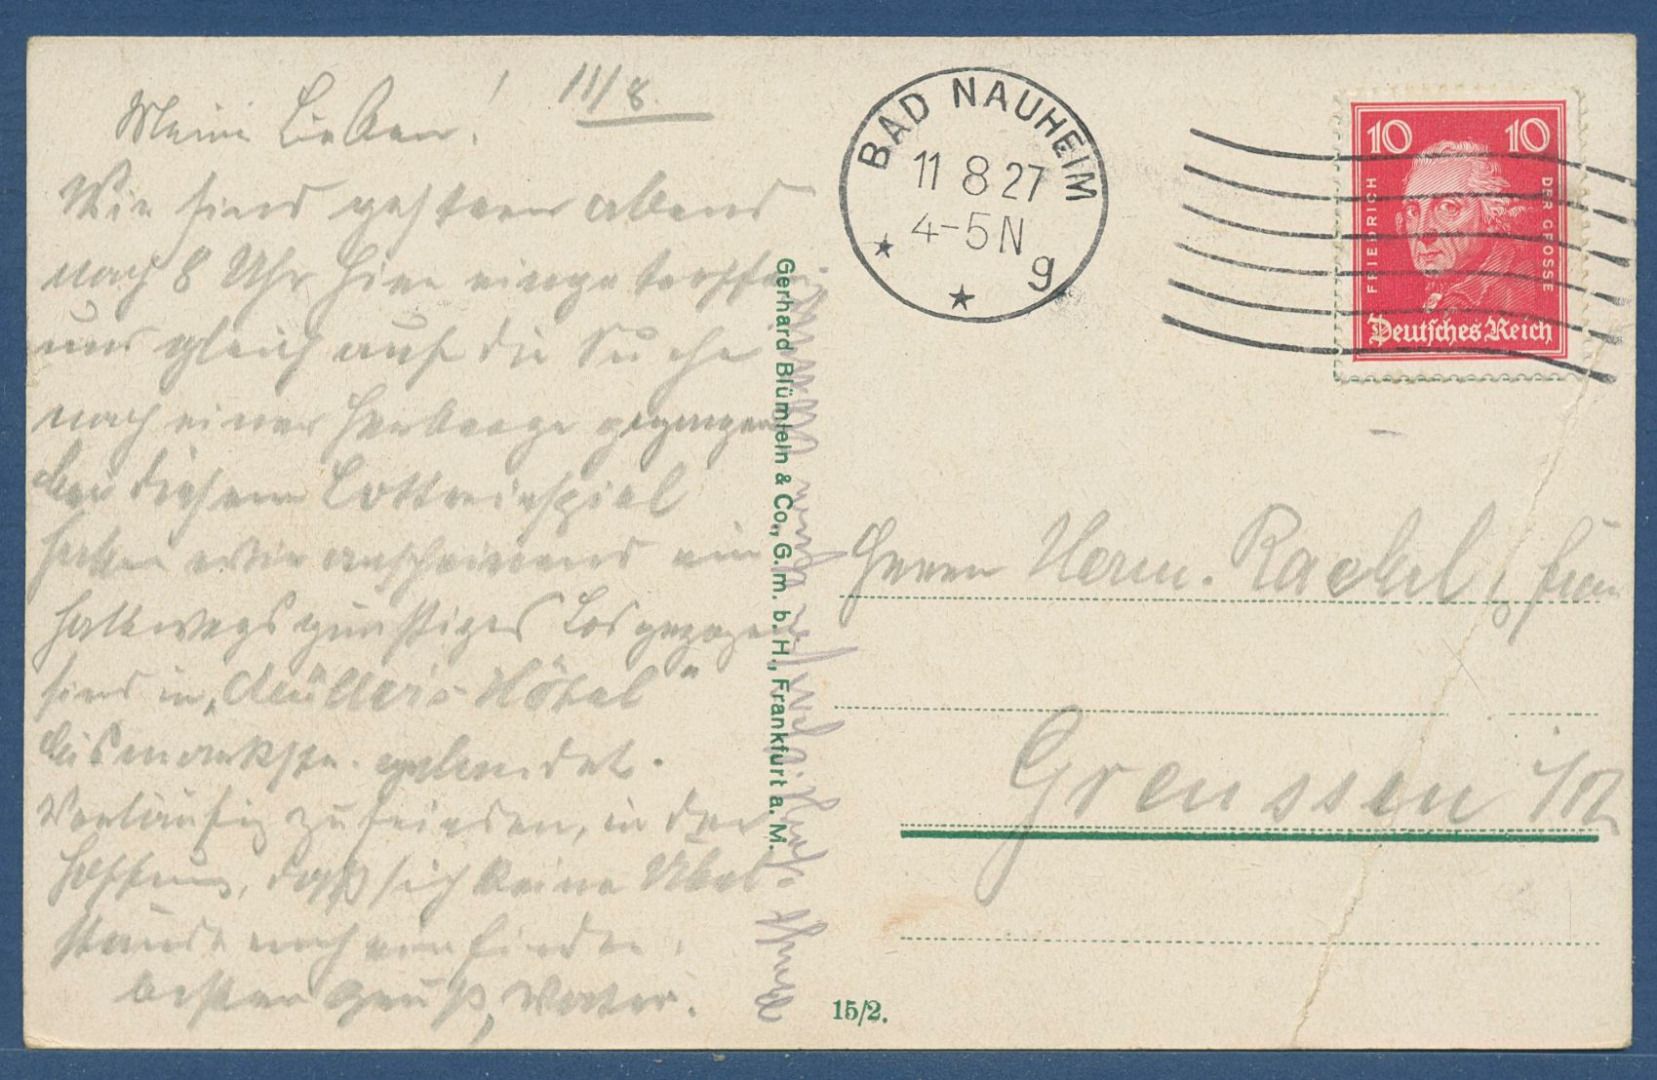 11/8.
Meine Lieben!
Wir sind gestern abend
nach 8 Uhr hier eingetroffen
und gleich auf die Suche
nach einer Herberge gegangen
bei diesem Lotteriespiel
haben wir anscheinend ein
halbwegs günstiges Los gezogen
sind in „Müller's Hôtel"
Bismarckstr. gelandet.
Vorläufig zufrieden, in der
Hoffnung, daß sich keine Übel-
stände noch einfinden.
besten Gruß, Vater.
Gerhard Blümlein & Co., G.m.b.H., Frankfurt a. M.
15/2.
BAD NAUHEIM
11 8 27
4-5 N
g
10 10
FRIEDRICH DER GROSSE
Deutsches Reich
Herrn Herm. Rackel,
Greussen i/Th